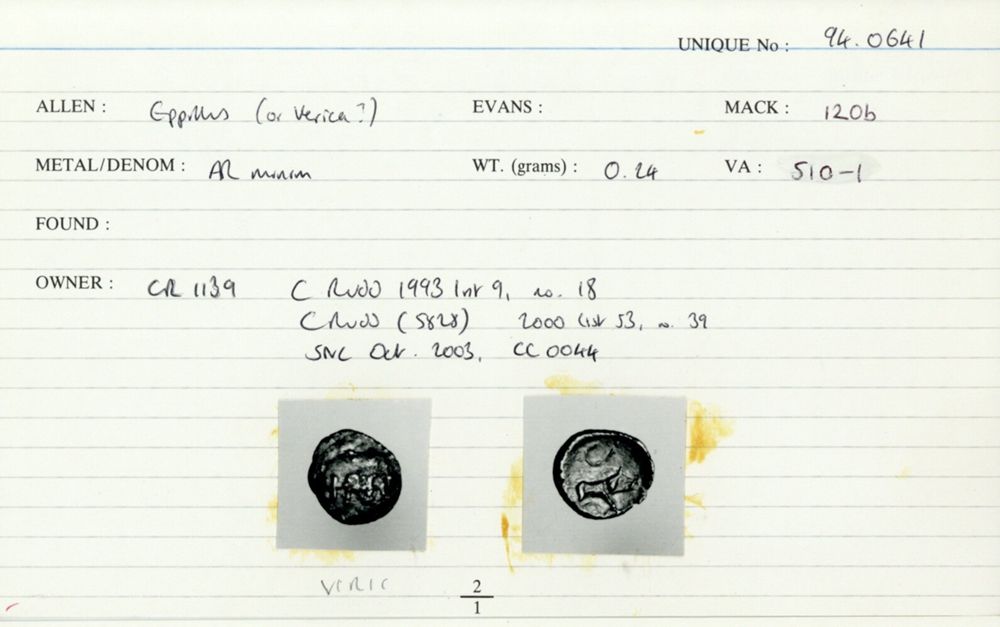 UNIQUE No : 94.0641
ALLEN : Eppillus (or Verica?) EVANS : MACK : 120b
METAL/DENOM : AR minim WT. (grams) : 0.24 VA : 510-1
FOUND :
OWNER : CR 1139 C Rudd 1993 list 9, no. 18
C Rudd (5828) 2000 list 53, no. 39
SNC Oct. 2003, CC 0044
VIRIC
2
1